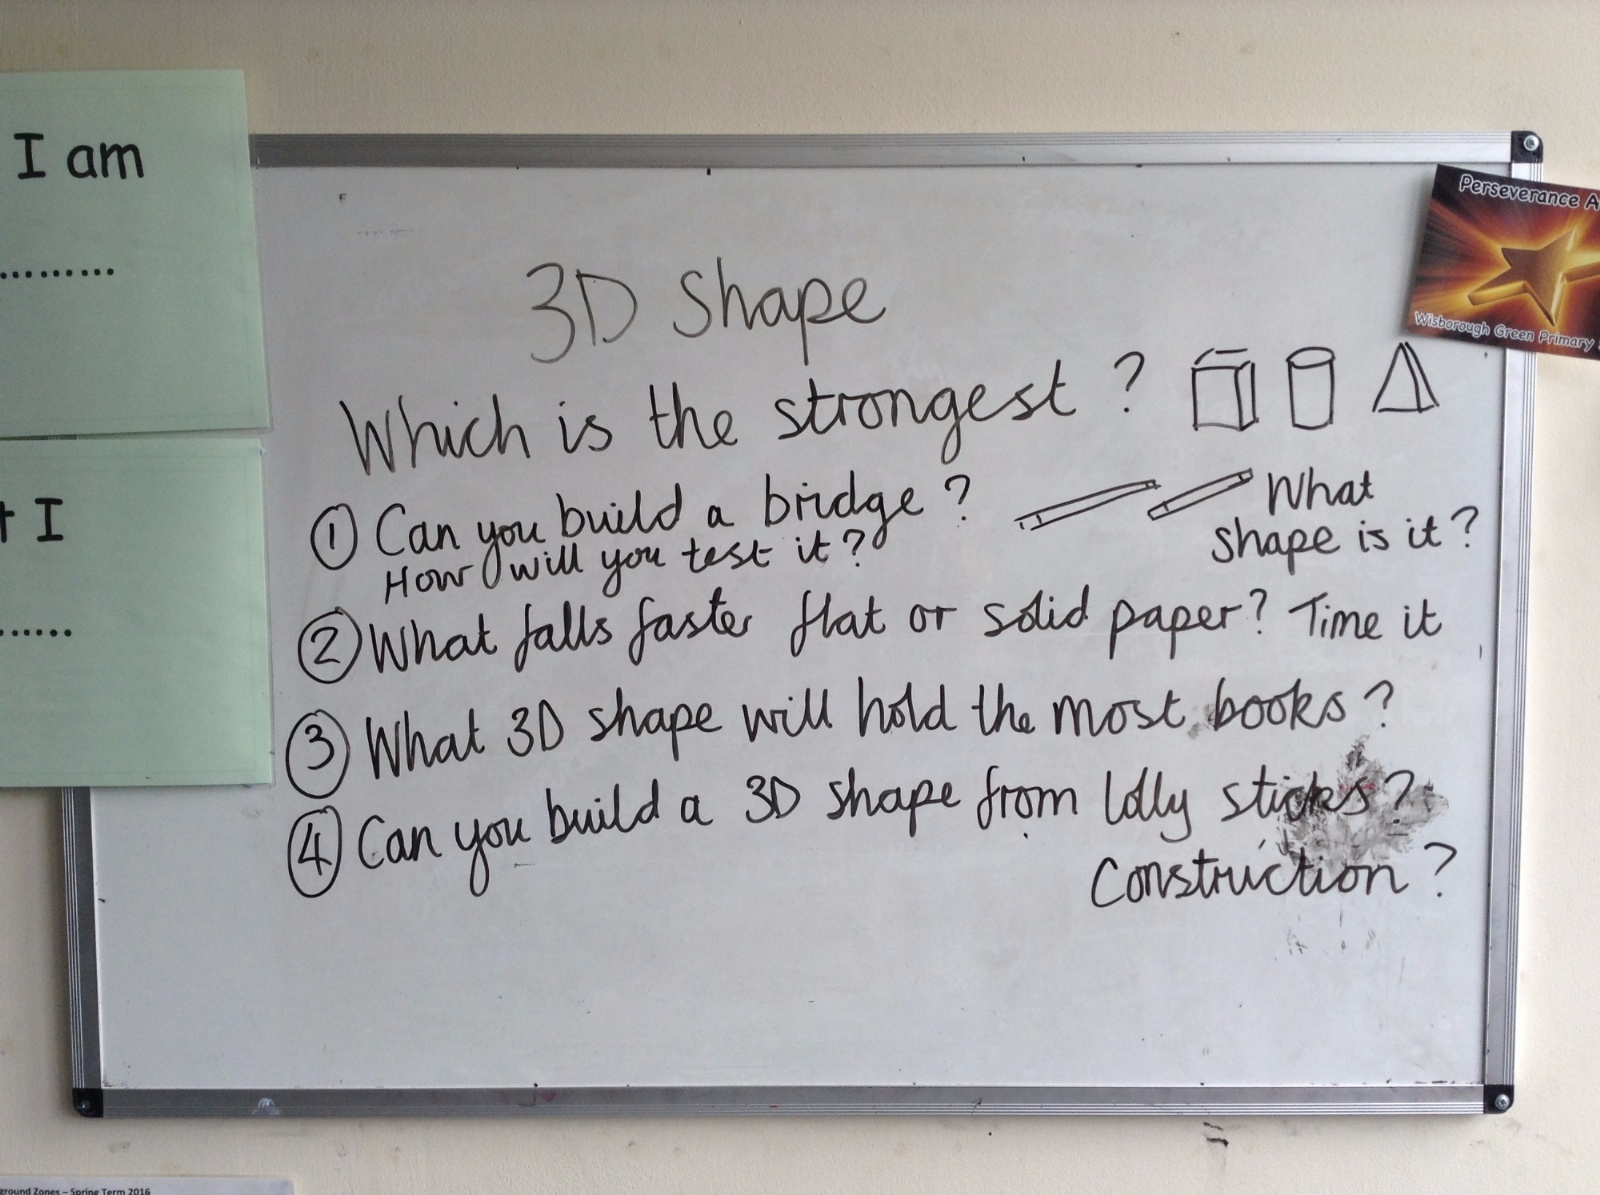 I am
..........
t I
......
Perseverance A
Wisborough Green Primary
3D Shape
Which is the strongest ?
① Can you build a bridge ?
How will you test it ?
What
shape is it ?
② What falls faster flat or solid paper? Time it
③ What 3D shape will hold the most books ?
④ Can you build a 3D shape from lolly sticks ?
Construction ?
ground Zones – Spring Term 2016